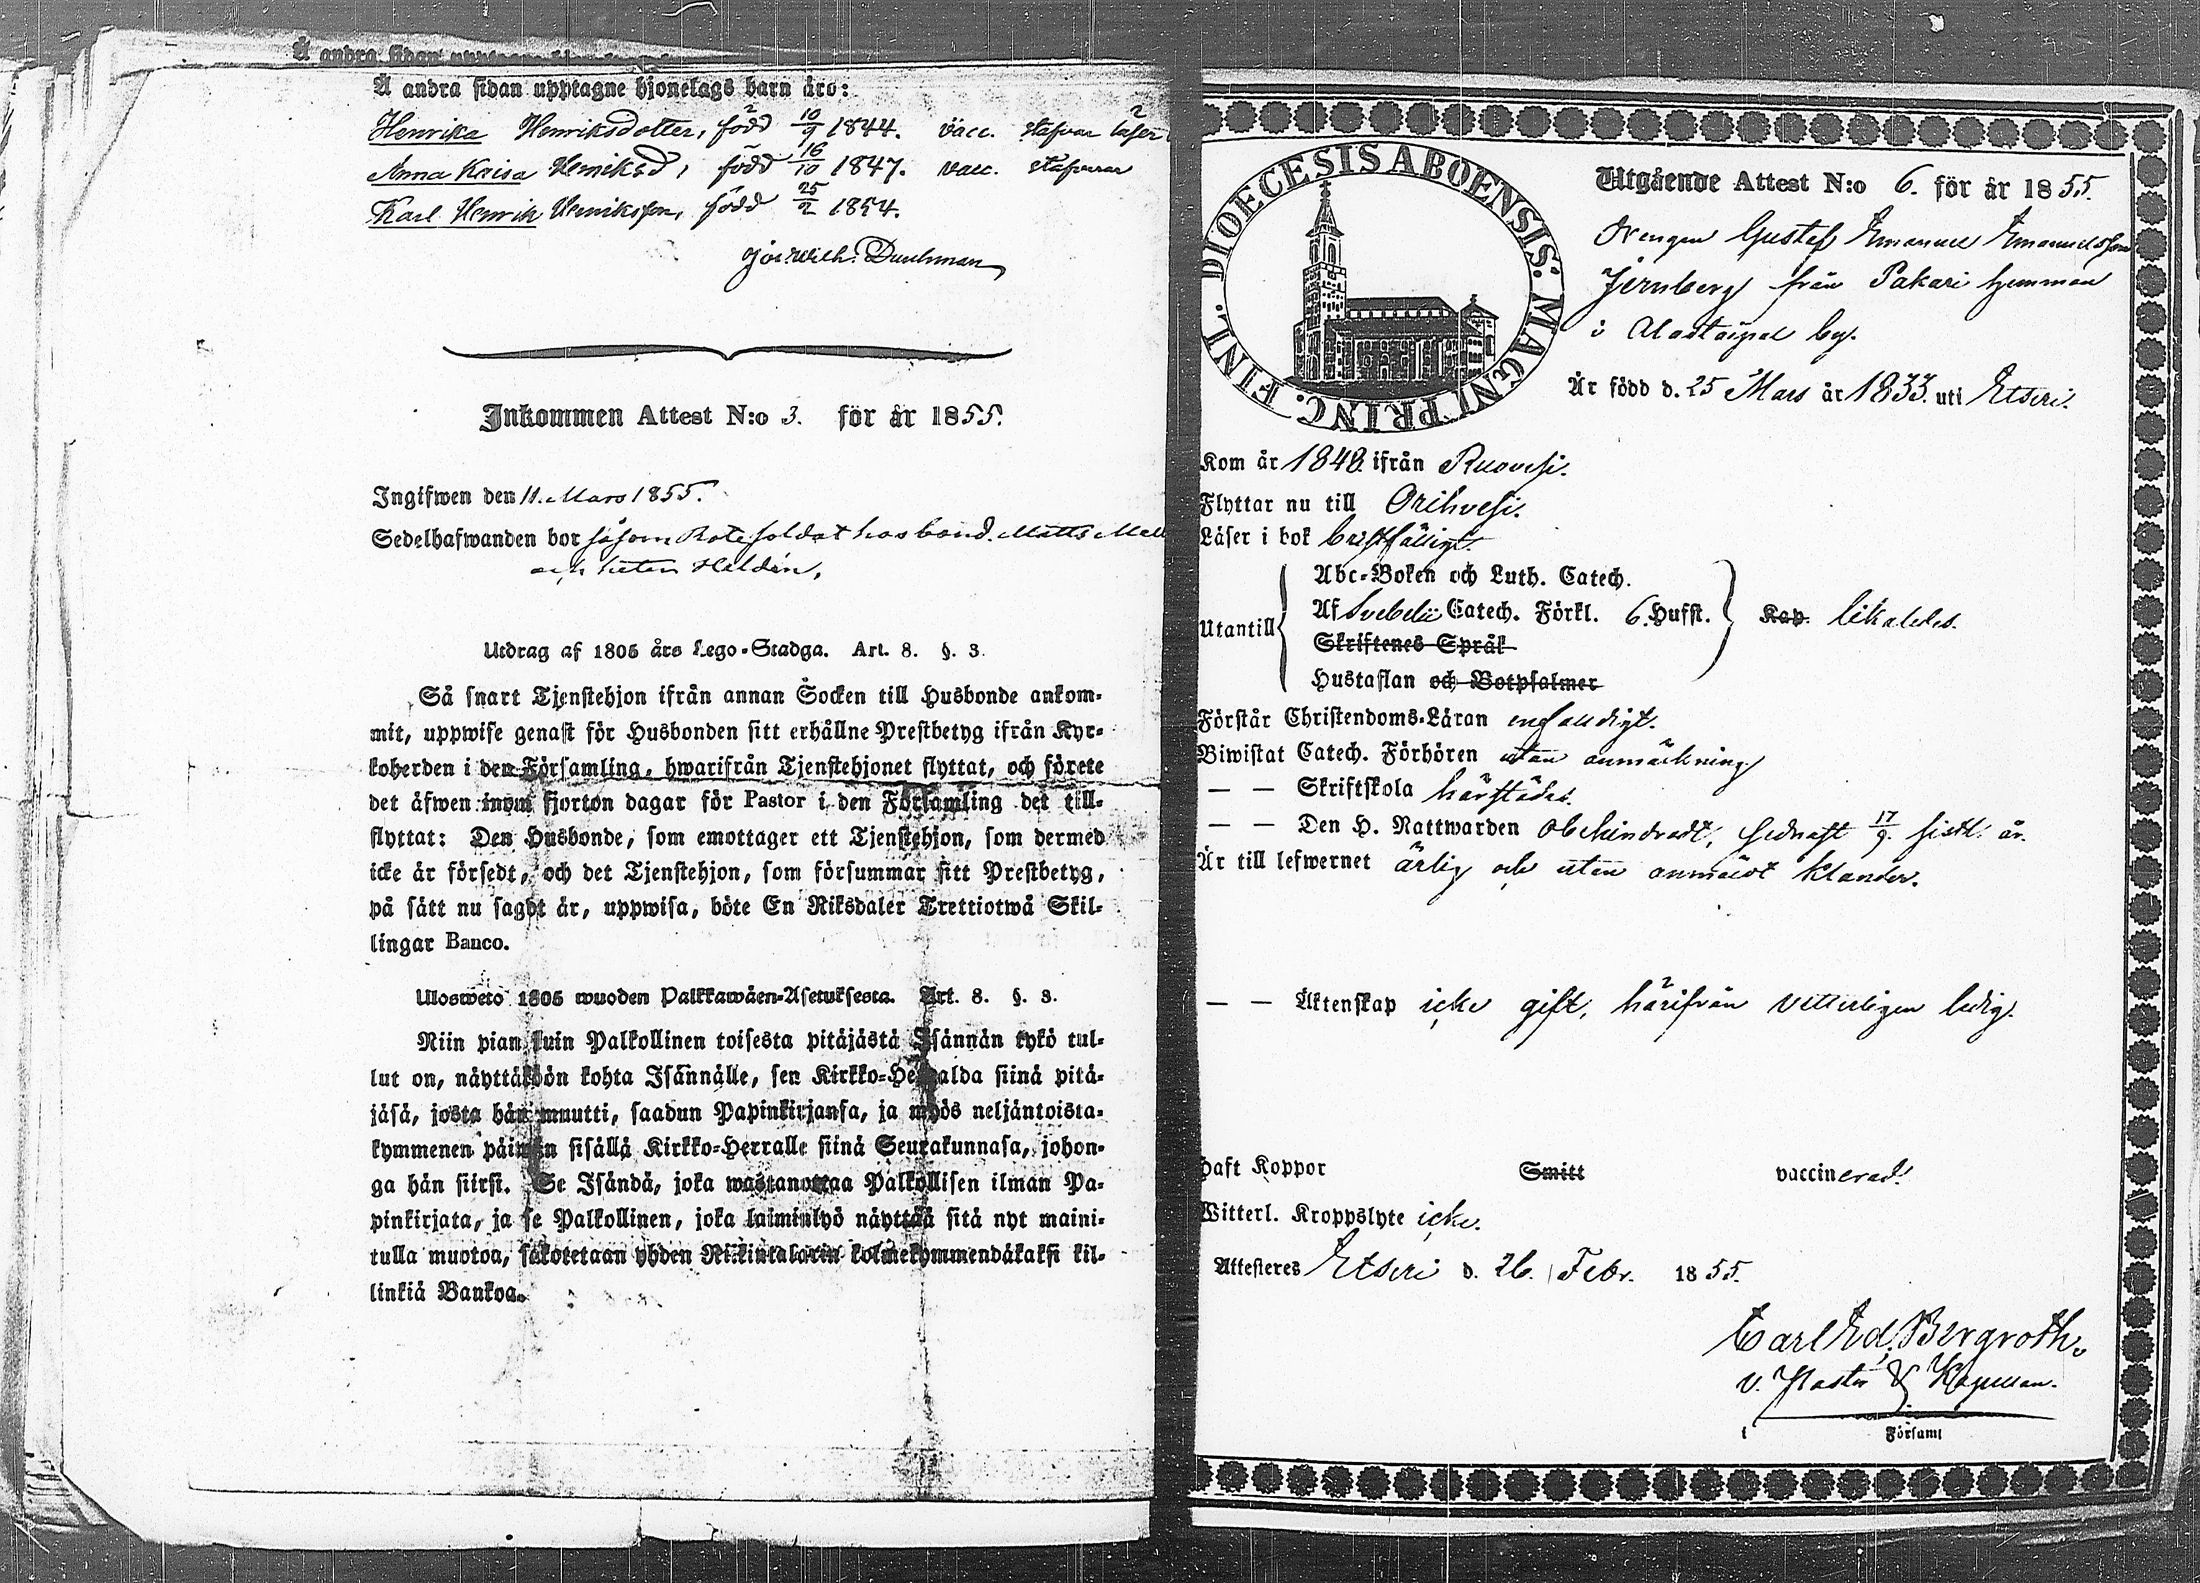 Å andra sidan upptagne
Å andra sidan upptagne hjonelags barn äro:
Henrika Henriksdotter, född 10/9 1844. vacc. stafvar läser
Anna Kaisa Henriksd, född 16/10 1847. vacc. stafvar
Karl Henrik Henriksson, född 25/2 1854.
Inkommen Attest N:o 3. för år 1855.
Ingifwen den 11. Mars 1855.
Sedelhafwanden bor såsom Rotesoldat hos bond. Matts
och Helden.
Utdrag af 1805 års Lego-Stadga. Art. 8. §. 3.
Så snart Tjenstehjon ifrån annan Socken till Husbonde ankom-
mit, uppwise genast för Husbonden sitt erhållne Prestbetyg ifrån Kyr-
koherden i den Församling, hwarifrån Tjenstehjonet flyttat, och förete
det äfwen inom fjorton dagar för Pastor i den Församling det till-
flyttat: Den Husbonde, som emottager ett Tjenstehjon, som dermed
icke är försedt, och det Tjenstehjon, som försummar sitt Prestbetyg,
på sätt nu sagdt är, uppwisa, böte En Riksdaler Trettiotwå Skil-
lingar Banco.
Uloswето 1805 wuoden Palkkawäen-Asetuksesta. Art. 8. §. 3.
Niin pian kuin Palkollinen toisesta pitäjästä Isännän tykö tul-
lut on, näyttäköön kohta Isännälle, sen Kirkko-Herralda siinä pitä-
jäsä, josta hän muutti, saadun Papinkirjansa, ja myös neljäntoista-
kymmenen päiwän sisällä Kirkko-Herralle siinä Seurakunnasa, johon-
ga hän siirsi. Se Isändä, joka wastanottaa Palkollisen ilman Pa-
pinkirjata, ja se Palkollinen, joka laiminlyö näyttää sitä nyt maini-
tulla muotoa, sakotetaan yhden Riikintalarin kolmekymmendäkaksi kil-
linkiä Bankoa.
FINL. DIOECESIS ABOENSIS. MAGNI PRINC.
Utgående Attest N:o 6. för år 1855.
Drengen Gustaf Emanuel Emanuelsson
Jernberg från Pakari hemman
i Alastaipal by.
Är född d. 25 Mars år 1833. uti Etseri.
Kom år 1848. ifrån Ruovesi.
Flyttar nu till Orihvesi.
Läser i bok bristfälligt.
Utantill
Abc-Boken och Luth. Catech.
Af Svebelii Catech. Förkl. 6. Hufst. Kap. likaledes.
Skriftenes Språk
Hustaflan och Botpsalmer
Förstår Christendoms-Läran enfaldigt.
Biwistat Catech. Förhören utan anmärkning
— — Skriftskola härstädes.
— — Den H. Nattwarden obehindradt, sednast 17/9. sistl. år.
Är till lefwernet ärlig och utan anmäldt klander.
— — Äktenskap icke gift, härifrån vetterligen ledig.
haft Koppor Smitt vaccinerad.
Witterl. Kroppslyte icke.
Attesteres Etseri d. 26. Febr. 1855.
Carl Ed. Bergroth.
v. Pastor & Kapellan.
i Församl